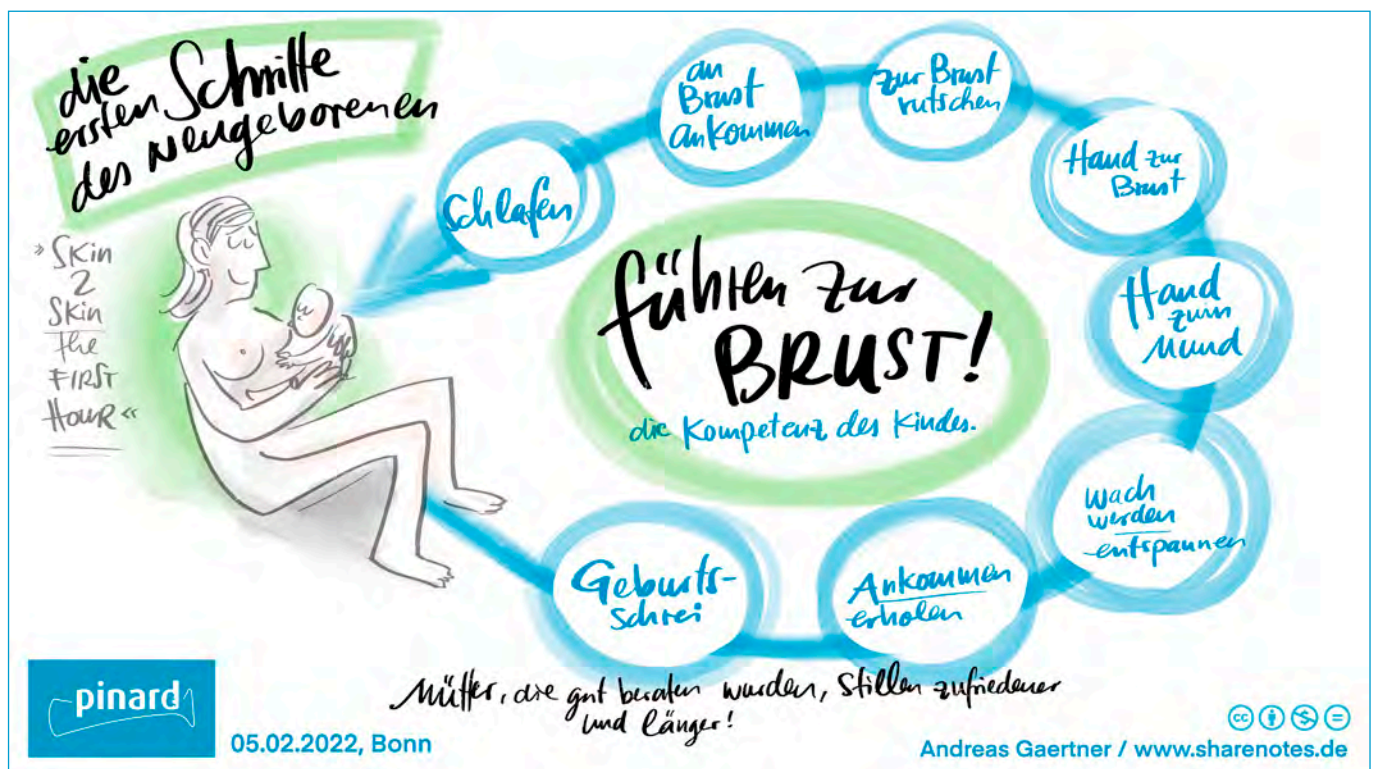 die
ersten Schritte
des Neugeborenen
»Skin
2
Skin
the
FIRST
Hour«
führen zur
BRUST!
die Kompetenz des Kindes.
Geburts-
schrei
Ankommen
erholen
wach
werden
entspannen
Hand
zum
Mund
Hand zur
Brust
zur Brust
rutschen
an
Brust
ankommen
Schlafen
Mütter, die gut beraten wurden, stillen zufriedener
und länger!
pinard
05.02.2022, Bonn
cc
Andreas Gaertner / www.sharenotes.de